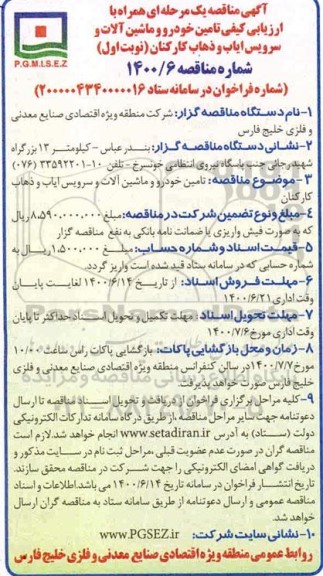 آگهی مناقصه یک مرحله ای همراه با
ارزیابی کیفی تامین خودرو و ماشین آلات و
سرویس ایاب و ذهاب کارکنان (نوبت اول)
P.G.M.I.S.E.Z
شماره مناقصه ۱۴۰۰/۶
(شماره فراخوان در سامانه ستاد ۲۰۰۰۰۰۴۳۴۰۰۰۰۰۱۶)
۱-نام دستگاه مناقصه گزار: شرکت منطقه ویژه اقتصادی صنایع معدنی
و فلزی خلیج فارس
۲-نشانی دستگاه مناقصه گزار: بندرعباس - کیلومتر ۱۳ بزرگراه
شهید رجائی جنب پاسگاه نیروی انتظامی خونسرخ - تلفن ۱۰-۳۳۵۹۲۲۰۱ (۰۷۶)
۳-موضوع مناقصه: تامین خودرو و ماشین آلات و سرویس ایاب و ذهاب
کارکنان
۴-مبلغ و نوع تضمین شرکت در مناقصه: مبلغ ۸،۵۹۰،۰۰۰،۰۰۰ ریال
که به صورت فیش واریزی یا ضمانت نامه بانکی به نفع مناقصه گزار
۵-قیمت اسناد و شماره حساب: مبلغ ۱،۵۰۰،۰۰۰ ریال به
شماره حسابی که در سامانه ستاد قید شده است واریز گردد.
۶-مهلت فروش اسناد: از تاریخ ۱۴۰۰/۶/۱۴ لغایت پایان
وقت اداری ۱۴۰۰/۶/۲۱
۷-مهلت تحویل اسناد: مهلت تکمیل و تحویل اسناد حداکثر تا پایان
وقت اداری مورخ ۱۴۰۰/۷/۶
۸-زمان و محل بازگشایی پاکات: بازگشایی پاکات راس ساعت ۱۰/۰۰
مورخ ۱۴۰۰/۷/۷ در سالن کنفرانس منطقه ویژه اقتصادی صنایع معدنی و فلزی
خلیج فارس صورت خواهد پذیرفت.
۹-کلیه مراحل برگزاری فراخوان از دریافت و تحویل اسناد مناقصه تا ارسال
دعوتنامه جهت سایر مراحل مناقصه، از طریق درگاه سامانه تدارکات الکترونیکی
دولت (ستاد) به آدرس www.setadiran.ir انجام خواهد شد. لازم است
مناقصه گران در صورت عدم عضویت قبلی، مراحل ثبت نام در سایت مذکور و
دریافت گواهی امضای الکترونیکی را جهت شرکت در مناقصه محقق سازند.
تاریخ انتشار فراخوان در سامانه تاریخ ۱۴۰۰/۶/۱۴ می باشد. اطلاعات و اسناد
مناقصه عمومی و ارسال دعوتنامه از طریق سامانه ستاد به مناقصه گران ارسال
خواهد شد.
۱۰-نشانی سایت شرکت: www.PGSEZ.ir
روابط عمومی منطقه ویژه اقتصادی صنایع معدنی و فلزی خلیج فارس